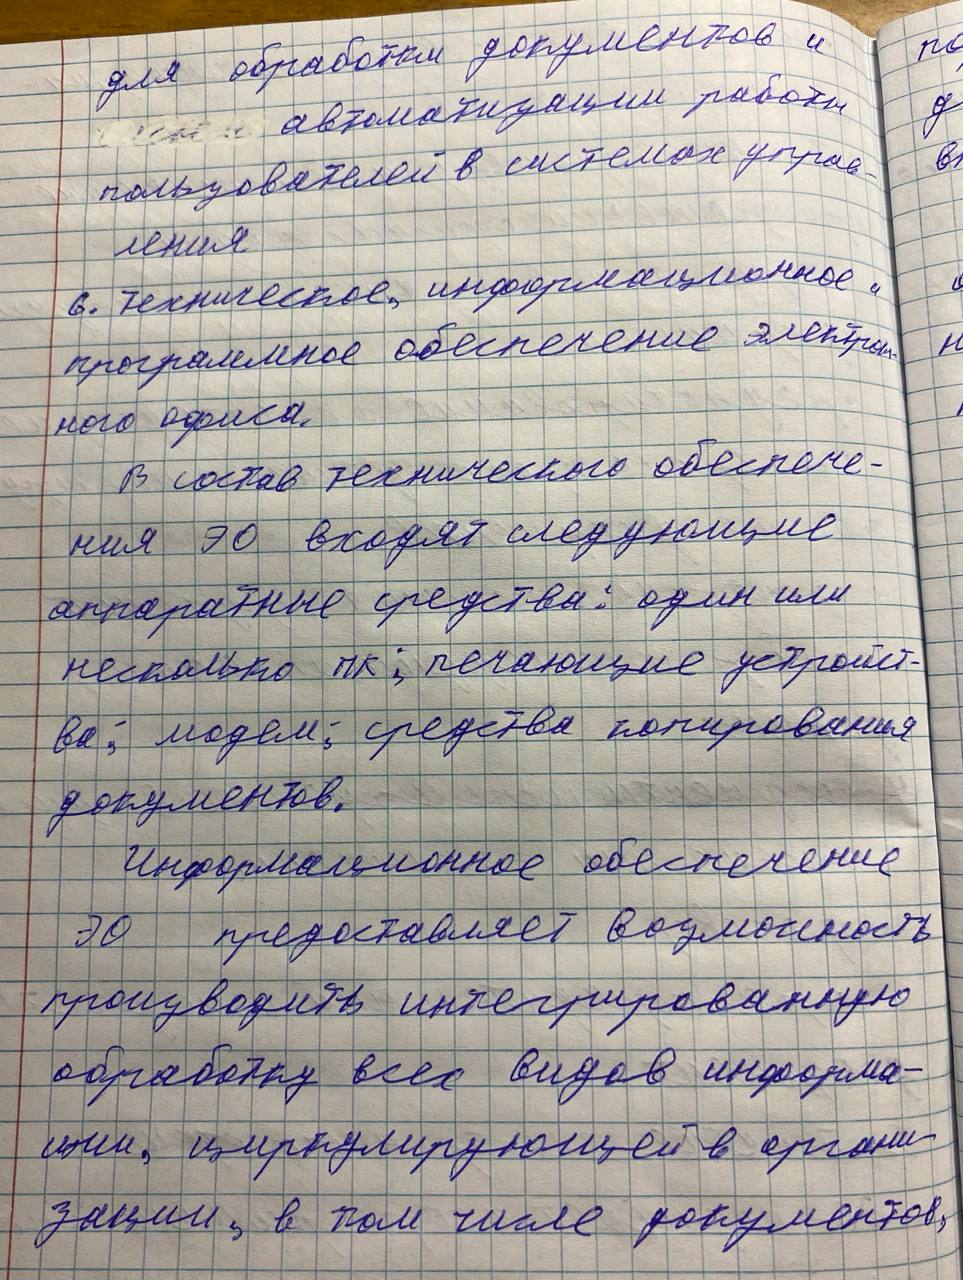 для обработки документов и
автоматизации работы
пользователей в системах управ-
ления
6. Техническое, информационное и
программное обеспечение электрон-
ного офиса.
В состав технического обеспече-
ния ЭО входят следующие
аппаратные средства: один или
несколько ПК; печатающие устройст-
ва; модем; средства копирования
документов.
Информационное обеспечение
ЭО предоставляет возможность
производить интегрированную
обработку всех видов информа-
ции, циркулирующей в органи-
зации, в том числе документов,
по
д
вк
н